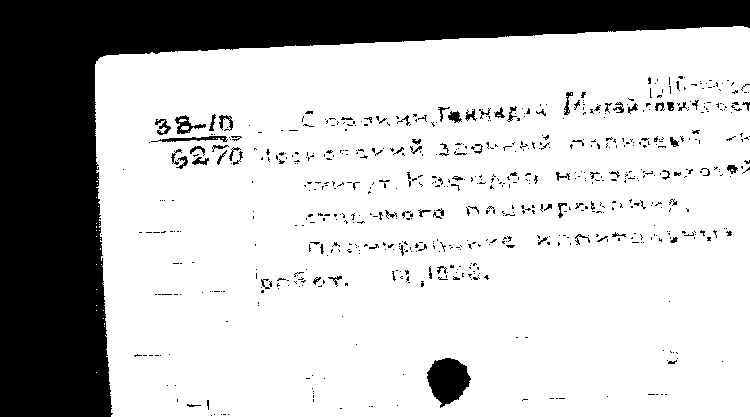 38-10
6270
Сорокин, Геннадий Михайлович
Московский заочный плановый ин
ститут. Кафедра народно-хозяй
ственного планирования.
Планирование капитальных
работ. М.,